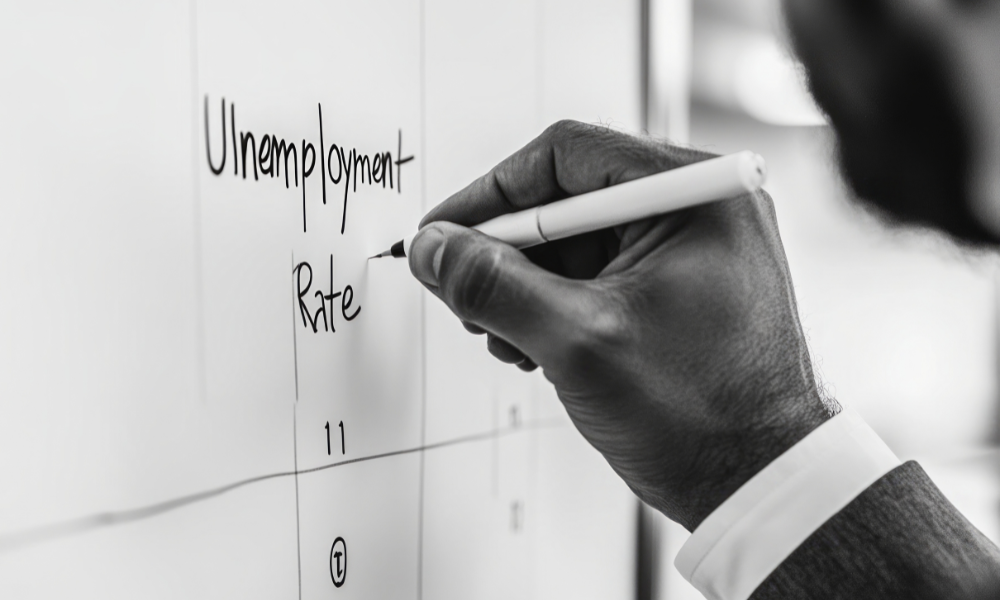 Ulnemployment
Rate
11